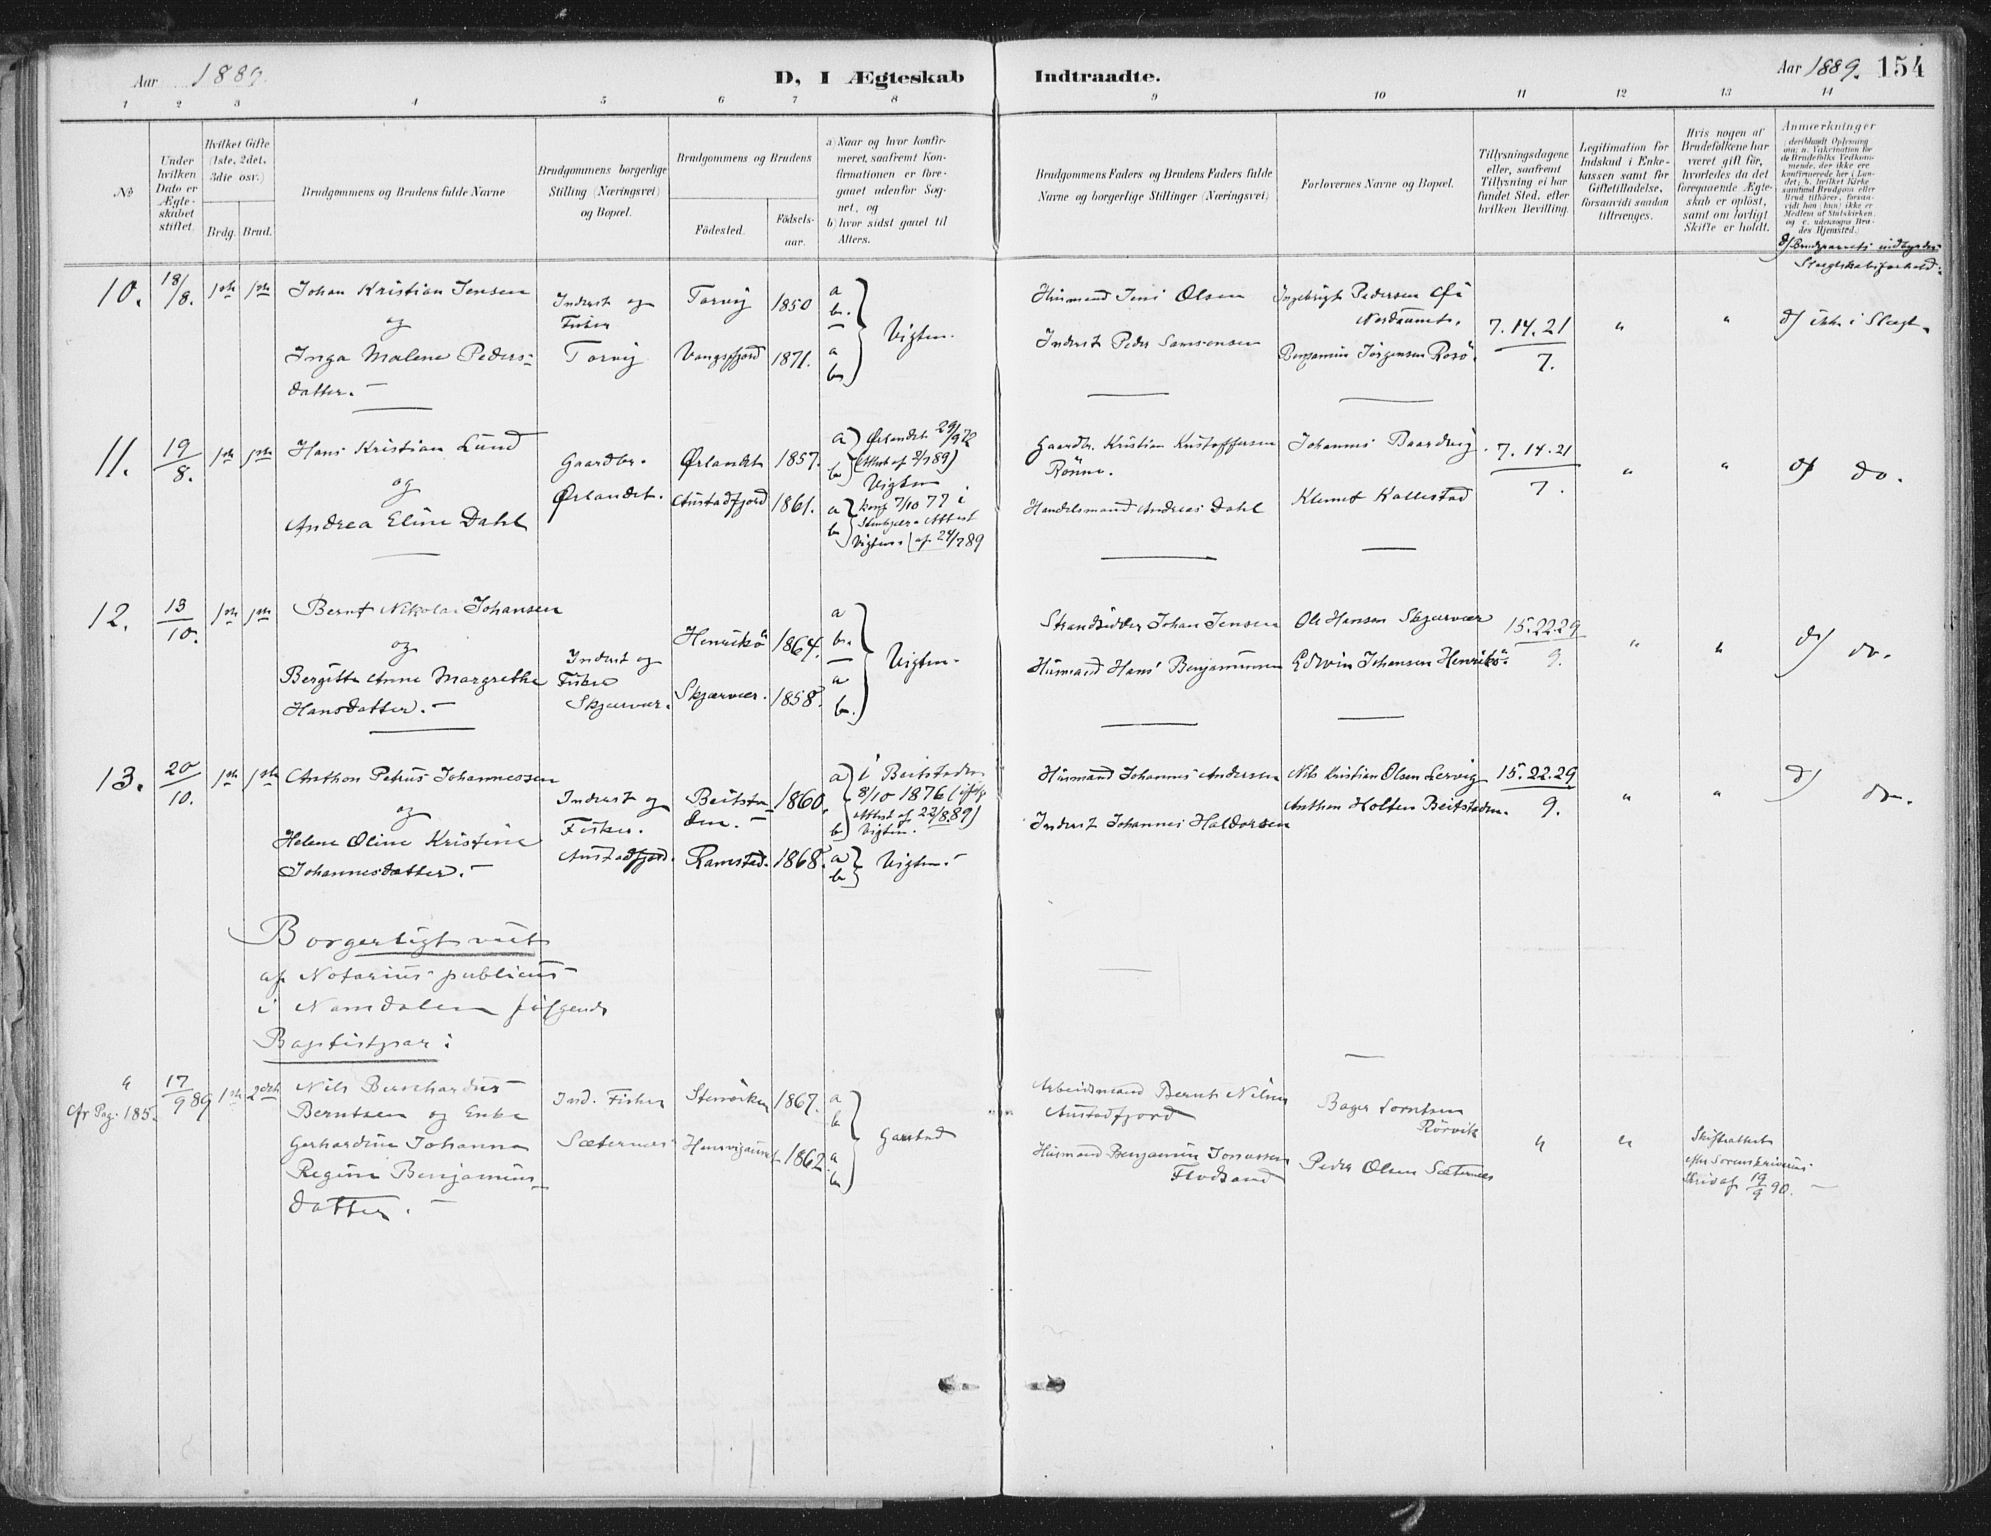 Aar 1889.
D, I Ægteskab
Indtraadte.
Aar 1889. 154
1 2 3 4 5 6 7 8 9 10 11 12 13 14
No
Under hvilken Dato er Ægteskabet stiftet.
Hvilket Gifte (1ste, 2det, 3die osv.)
Brdg. Brud.
Brudgommens og Brudens fulde Navne
Brudgommens borgerlige Stilling (Næringsvei) og Bopæl.
Brudgommens og Brudens
Fødested.
Fødselsaar.
a) Naar og hvor konfirmeret, saafremt Konfirmationen er foregaaet udenfor Sognet, og
b) hvor sidst gaaet til Alters.
Brudgommens Faders og Brudens Faders fulde Navne og borgerlige Stillinger (Næringsvei)
Forlovernes Navne og Bopæl.
Tillysningsdagene eller, saafremt Tillysning ei har fundet Sted, efter hvilken Bevilling.
Legitimation for Indskud i Enkekassen samt for Giftetilladelse, forsaavidt saadan tiltrænges.
Hvis nogen af Brudefolkene har været gift før, hvorledes da det foregaaende Ægteskab er opløst, samt om lovligt Skifte er holdt.
Anmærkninger
d) Brudeparrets indbyrdes Slægtskabsforhold.
10. 18/8. 1ste 1ste
Johan Kristian Jensen
og
Inga Malene Peders-
datter. —
Inderst og
Fisker
Torvig
Torvig 1850 a b.
Vangsfjord 1871. a b.
Vigten.
Husmand Jens Olsen
Inderst Peder Samsonsen
Ingebrigt Pedersen
Benjamin Jørgensen Rosø.
7. 14. 21
7.
" "
d) ikke i Slægt.
11. 19/8. 1ste 1ste
Hans Kristian Lund
og
Andrea Eline Dahl
Gaardbr.
Ørlandet.
Ørlandet 1857. a) Ørlandet 29/9 72
b) (Attest af 2/7 89)
Vigten
Austadfjord 1861. a) konf 7/10 77 i
b) Attest
Vigten. af 24/7 89
Gaardbr. Kristian Kristoffersen
Rønne.
Handelsmand Andreas Dahl
Johannes Baardvig
Klemet Kallestad
7. 14. 21
7.
" "
d) do.
12. 13/10. 1ste 1ste
Bernt Nikolai Johansen
og
Bergitte Anne Margrethe
Hansdatter. —
Inderst og
Fisker
Skjærvær.
Henriksö 1864. a b.
Skjærvær. 1858. a b.
Vigten.
Strandsidder Johan Jensen
Husmand Hans Benjaminsen
Ole Hansen Skjærvær
Edvin Johansen Henriksö.
15. 22. 29
9.
" "
d) do.
13. 20/10. 1ste 1ste
Anthon Petrus Johannessen
og
Helene Oline Kristine
Johannesdatter. —
Inderst og
Fisker.
Austadfjord.
Beitsta-
den. — 1860. a) i Beitstaden
8/10 1876 (ifølge
Attest af 22/8. 89)
b) Vigten.
Ramstad. 1868. a b Vigten. —
Husmand Johannes Andersen
Inderst Johannes Haldorsen
Nils Kristian Olsen Lervig
Anthon Holten Beitstaden.
15. 22. 29
9.
" "
d) do.
Borgerligt viet
af Notarius publicus
i Namdalen følgende
Baptistpar:
" 17/9 89 1ste 2det
cfr Pag. 185.
Nils Bernhardus
Berntsen og Enke
Gerhardine Johanna
Regine Benjamins-
datter. —
Ind. Fisker
Sæternes
1867. a b
1862. a b
Garstad
Arbeidsmand Bernt Nilsen
Austadfjord
Husmand Benjamin Jonassen
Flodsand
Bager Lorntsen
Rörvik
Peder Olsen Sæternes
" "
Skifteattest
efter Sorenskriverens
Skriv af 19/9 90. —